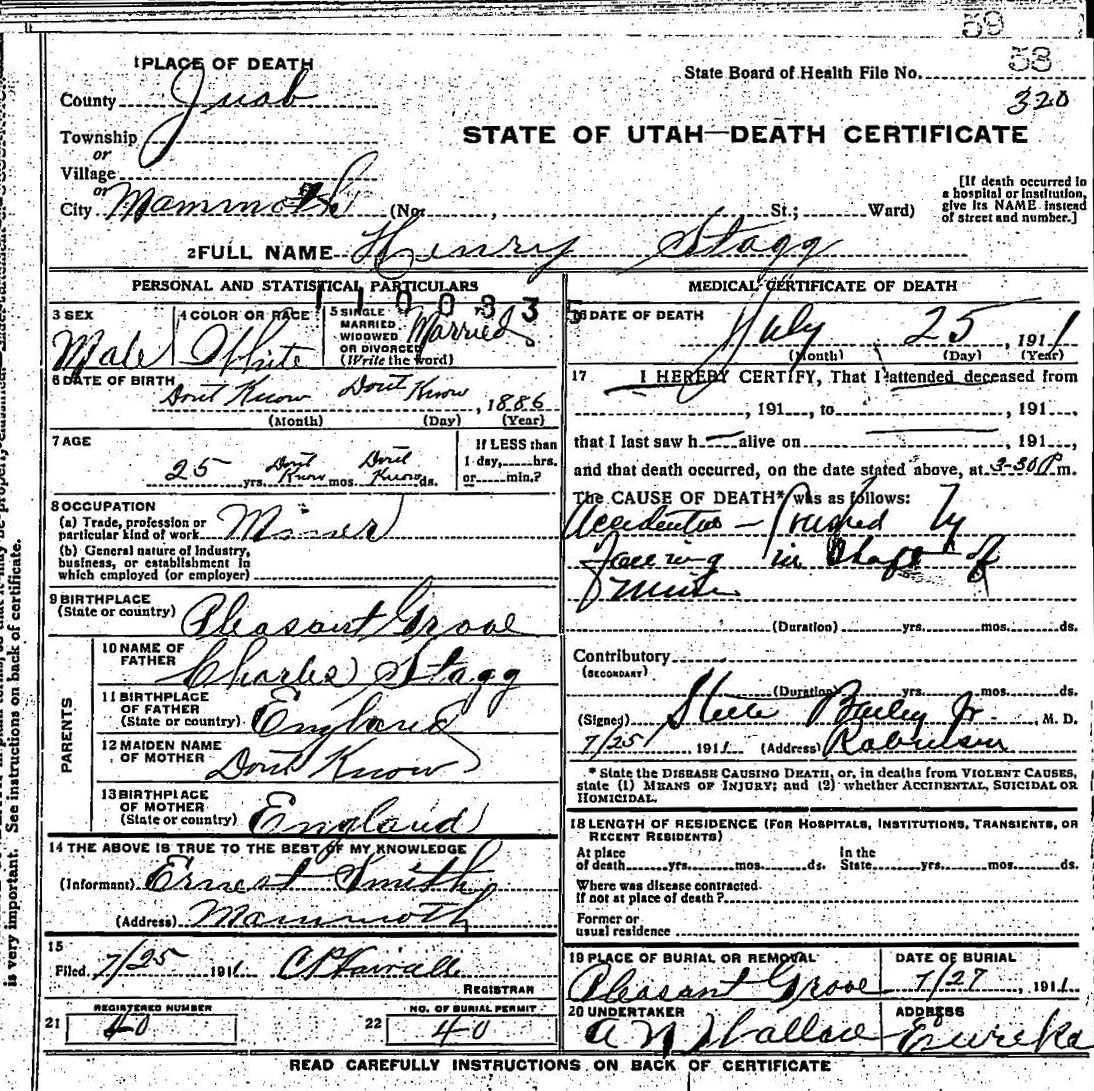 59
1 PLACE OF DEATH
State Board of Health File No. 53
320
County Juab
Township
or
Village
or
City Mammoth (No. , St.; Ward)
STATE OF UTAH—DEATH CERTIFICATE
[If death occurred in a hospital or institution, give its NAME instead of street and number.]
2 FULL NAME Henry Stagg
PERSONAL AND STATISTICAL PARTICULARS
110033
3 SEX
Male
4 COLOR OR RACE
White
5 SINGLE
MARRIED
WIDOWED
OR DIVORCED
(Write the word)
Married
6 DATE OF BIRTH
Dont Know Dont Know, 1886
(Month) (Day) (Year)
7 AGE
25 yrs. Dont Know mos. Dont Know ds.
If LESS than
1 day, hrs.
or min.?
8 OCCUPATION
(a) Trade, profession or
particular kind of work Miner
(b) General nature of Industry,
business, or establishment in
which employed (or employer)
9 BIRTHPLACE
(State or country) Pleasant Grove
PARENTS
10 NAME OF
FATHER Charles Stagg
11 BIRTHPLACE
OF FATHER
(State or country) England
12 MAIDEN NAME
OF MOTHER Dont Know
13 BIRTHPLACE
OF MOTHER
(State or country) England
14 THE ABOVE IS TRUE TO THE BEST OF MY KNOWLEDGE
(Informant) Ernest Smith
(Address) Mammoth
15
Filed 7/25 1911
REGISTRAR
REGISTERED NUMBER
21 40
NO. OF BURIAL PERMIT
22 40
MEDICAL CERTIFICATE OF DEATH
16 DATE OF DEATH
July 25, 1911
(Month) (Day) (Year)
17 I HEREBY CERTIFY, That I attended deceased from
, 191 , to , 191 ,
that I last saw h alive on 191 ,
and that death occurred, on the date stated above, at 3-30 P m.
The CAUSE OF DEATH* was as follows:
Accidental - Crushed by
in Shaft of
Mine
(Duration) yrs. mos. ds.
Contributory
(SECONDARY)
(Duration) yrs. mos. ds.
(Signed) Steele Bailey Jr. M. D.
7/25 1911 (Address) Robinson
* State the DISEASE CAUSING DEATH, or, in deaths from VIOLENT CAUSES,
state (1) MEANS OF INJURY; and (2) whether ACCIDENTAL, SUICIDAL OR
HOMICIDAL.
18 LENGTH OF RESIDENCE (FOR HOSPITALS, INSTITUTIONS, TRANSIENTS, OR
RECENT RESIDENTS)
At place
of death yrs. mos. ds.
In the
State yrs. mos. ds.
Where was disease contracted
If not at place of death?
Former or
usual residence
19 PLACE OF BURIAL OR REMOVAL
Pleasant Grove
DATE OF BURIAL
7/27, 1911
20 UNDERTAKER
A N Wallace
ADDRESS
Eureka
READ CAREFULLY INSTRUCTIONS ON BACK OF CERTIFICATE
is very important. See instructions on back of certificate.